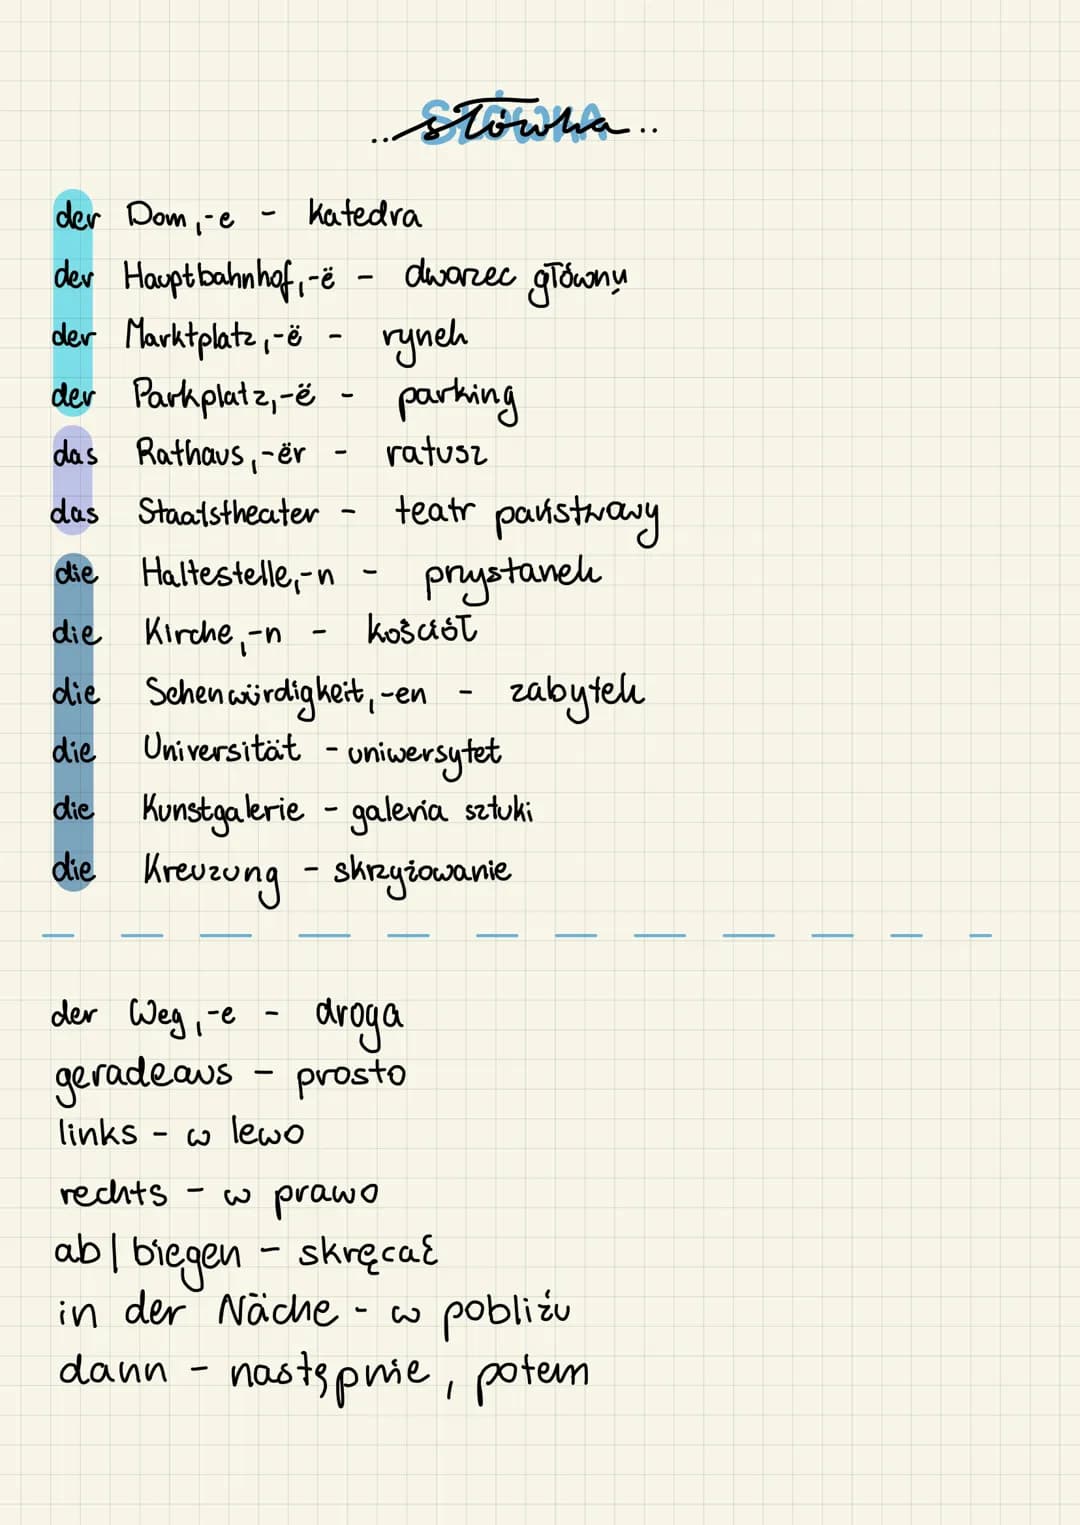 SŁÓWKA
..słówka..
der Dom,-e - katedra
der Hauptbahnhof,-ë - dworzec główny
der Marktplatz,-ë - rynek
der Parkplatz,-ë - parking
das Rathaus,-ër - ratusz
das Staatstheater - teatr państwowy
die Haltestelle,-n - przystanek
die Kirche,-n - kościół
die Sehenwürdigkeit,-en - zabytek
die Universität - uniwersytet
die Kunstgalerie - galeria sztuki
die Kreuzung - skrzyżowanie
der Weg,-e - droga
geradeaus - prosto
links - w lewo
rechts - w prawo
ab|biegen - skręcać
in der Näche - w pobliżu
dann - następnie, potem